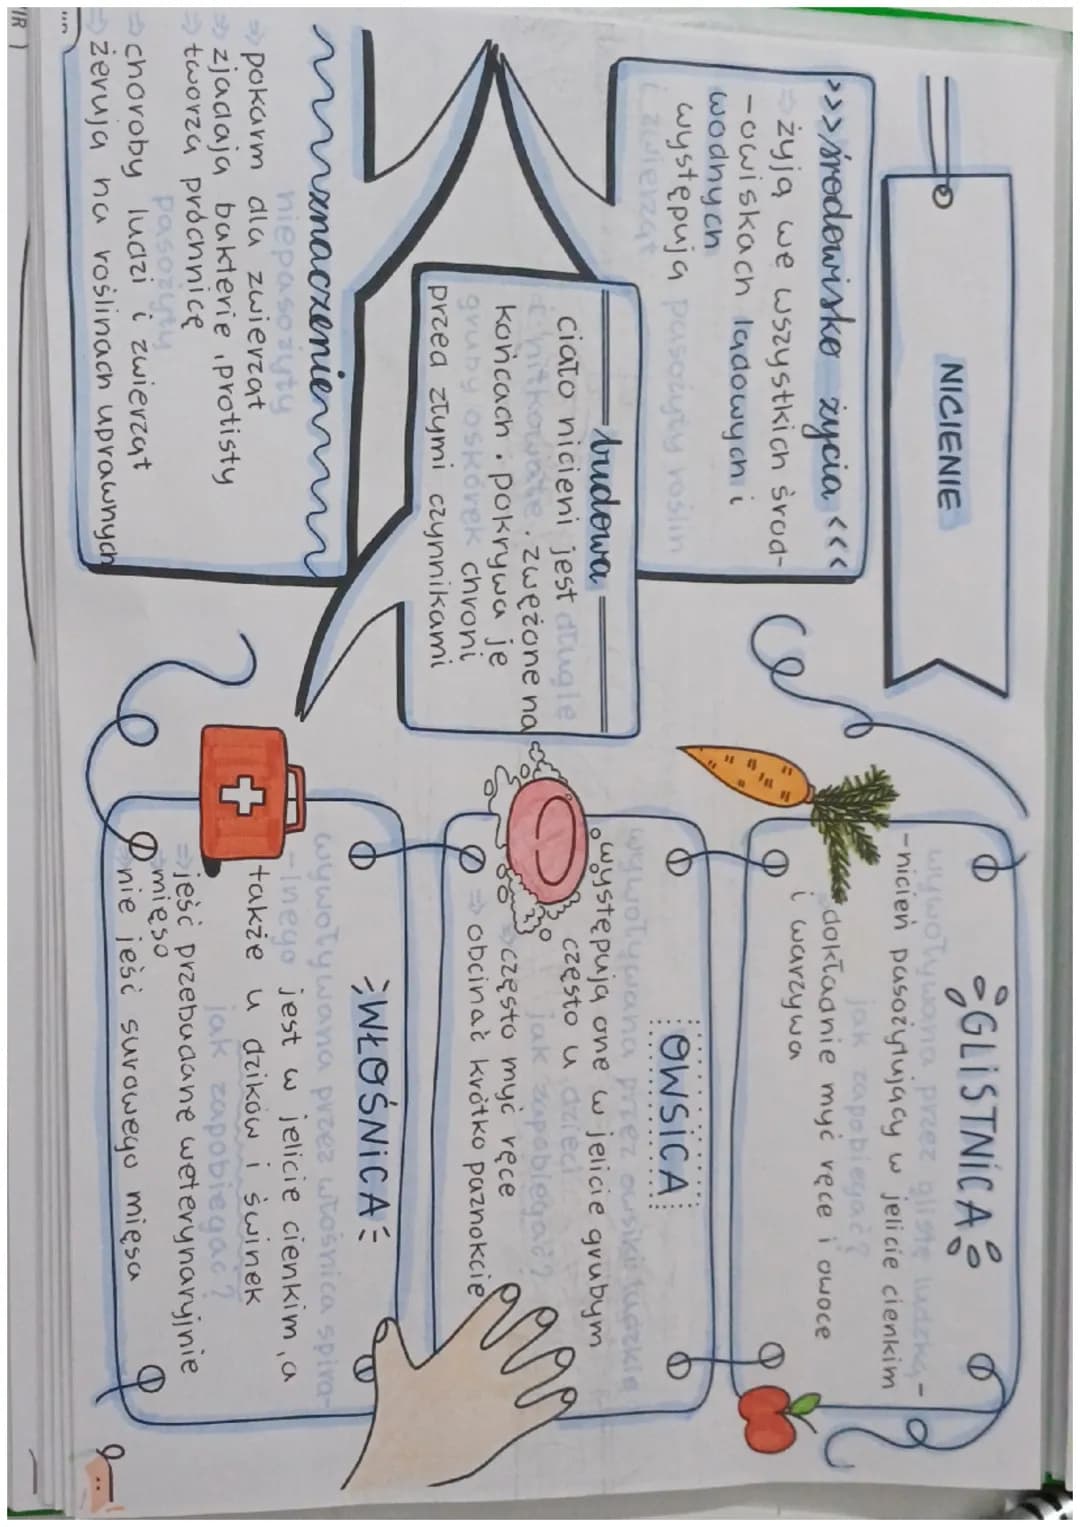 NICIENIE
>>> środowisko życia <<<
⇒ żyją we wszystkich środ-
-owiskach lądowych i
wodnych
występują pasożyty roślin
i zwierząt
budowa
ciało nicieni jest długie
i nitkowate, zwężone na
końcach. pokrywa je
gruby oskórek chroni
przed złymi czynnikami
znaczenie
niepasożyty
⇒ pokarm dla zwierząt
⇒ zjadają bakterie, protisty
⇒ tworzą próchnicę
pasożyty
⇒ choroby ludzi i zwierząt
⇒ żerują na roślinach uprawnych
GLISTNICA
wywoływana przez glistę ludzką-
-nicień pasożytujący w jelicie cienkim
jak zapobiegać?
dokładnie myć ręce i owoce
i warzywa
OWSICA
wywoływana przez owsiki ludzkie
występują one w jelicie grubym
często u dzieci
jak zapobiegać?
⇒ często myć ręce
⇒ obcinać krótko paznokcie
WŁOŚNICA
wywoływana przez włośnica spira-
-lnego jest w jelicie cienkim, a
także u dzików i świnek
jak zapobiegać?
⇒ jeść przebadane weterynaryjnie
mięso
⇒ nie jeść surowego mięsa